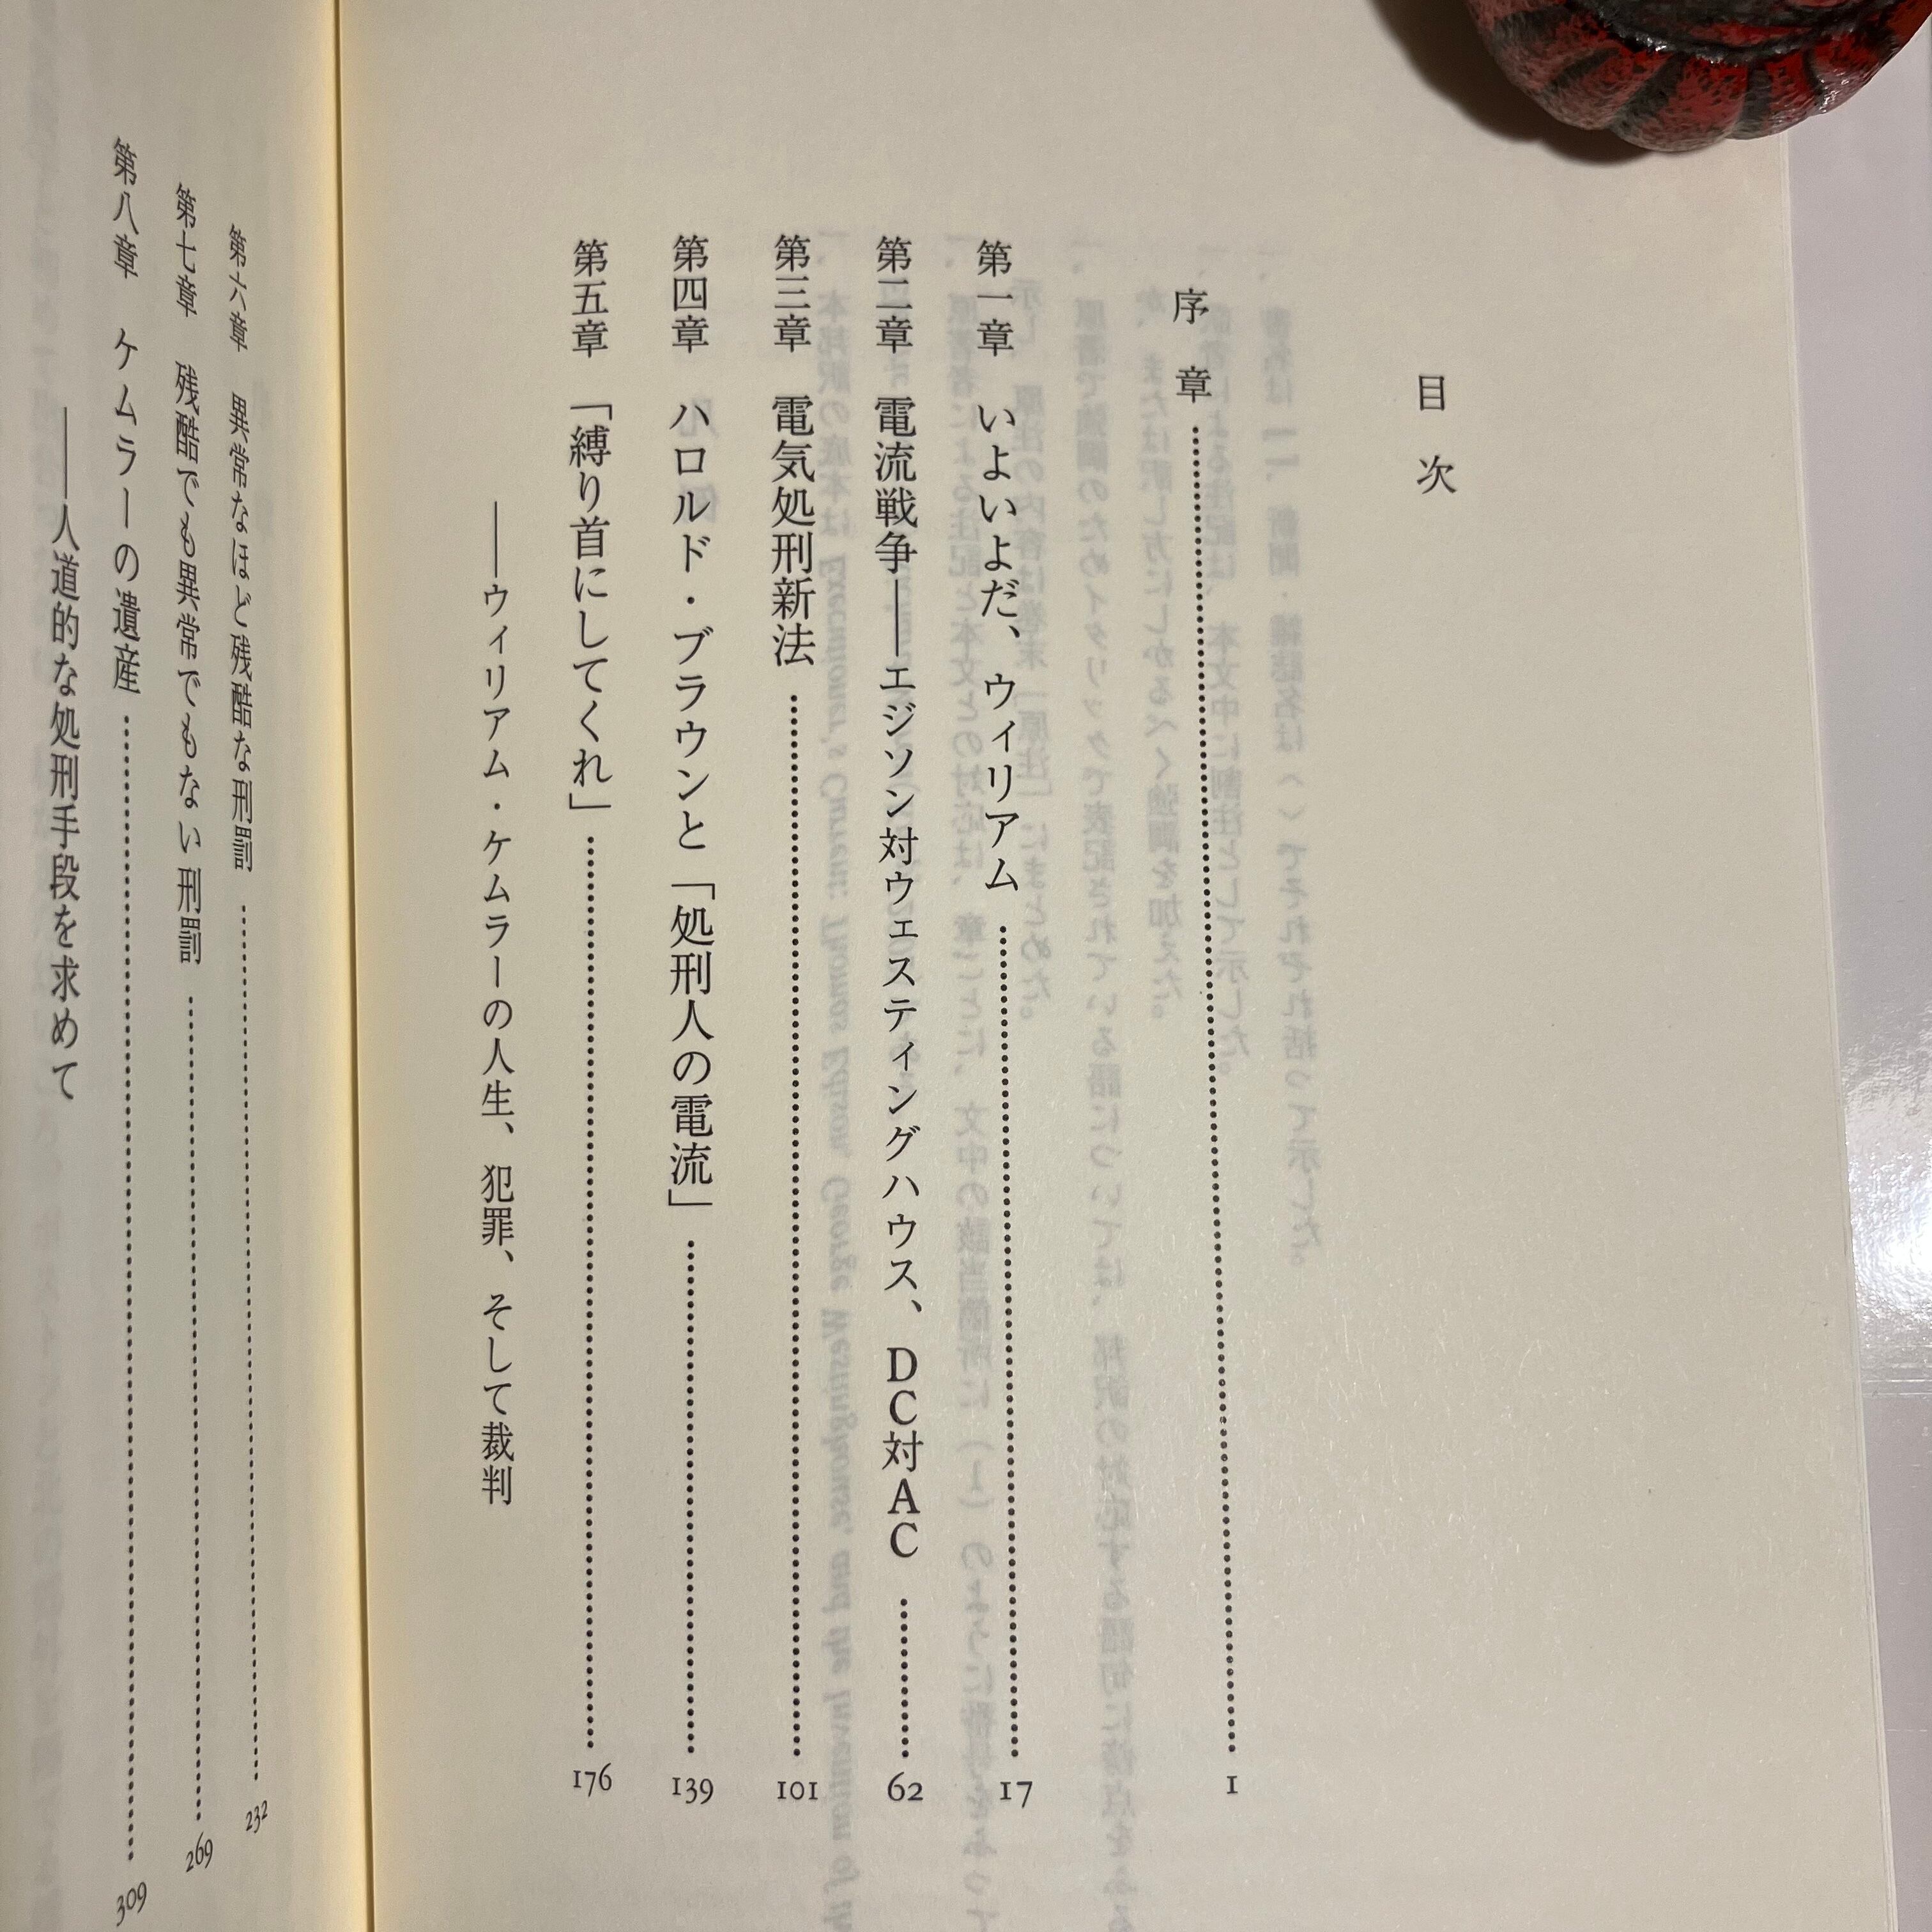 目次
序章 1
第一章 いよいよだ、ウィリアム 17
第二章 電流戦争――エジソン対ウェスティングハウス、DC対AC 62
第三章 電気処刑新法 101
第四章 ハロルド・ブラウンと「処刑人の電流」 139
第五章 「縛り首にしてくれ」 176
――ウィリアム・ケムラーの人生、犯罪、そして裁判
第六章 異常なほど残酷な刑罰 232
第七章 残酷でも異常でもない刑罰 269
第八章 ケムラーの遺産 309
――人道的な処刑手段を求めて